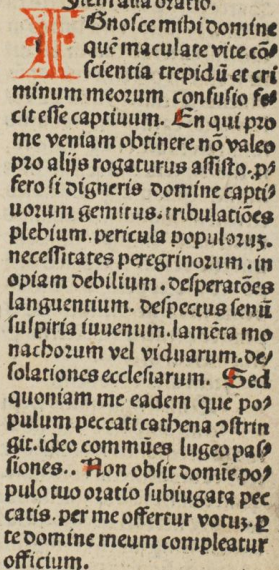 Item alia oratio.
IGnosce mihi domine
quē maculate vite cō⸗
scientia trepidū et cri
minum meorum confusio fe⸗
cit esse captiuum. En qui pro
me veniam obtinere nō valeo
pro alijs rogaturus assisto. ꝓ⸗
fero si digneris domine capti⸗
uorum gemitus. tribulatiōes
plebium. pericula populoꝝ.
necessitates peregrinorum. in
opiam debilium. desperatōes
languentium. defectus senū
suspiria iuuenum. lamēta mo
nachorum vel viduarum. de⸗
solationes ecclesiarum. Sed
quoniam me eadem que po⸗
pulum peccati cathena ꝯstrin
git. ideo commūes lugeo pas⸗
siones.. Non obsit domīe po⸗
pulo tuo oratio subiugata pec
catis. per me offertur votuꝫ. ꝑ
te domine meum compleatur
officium.